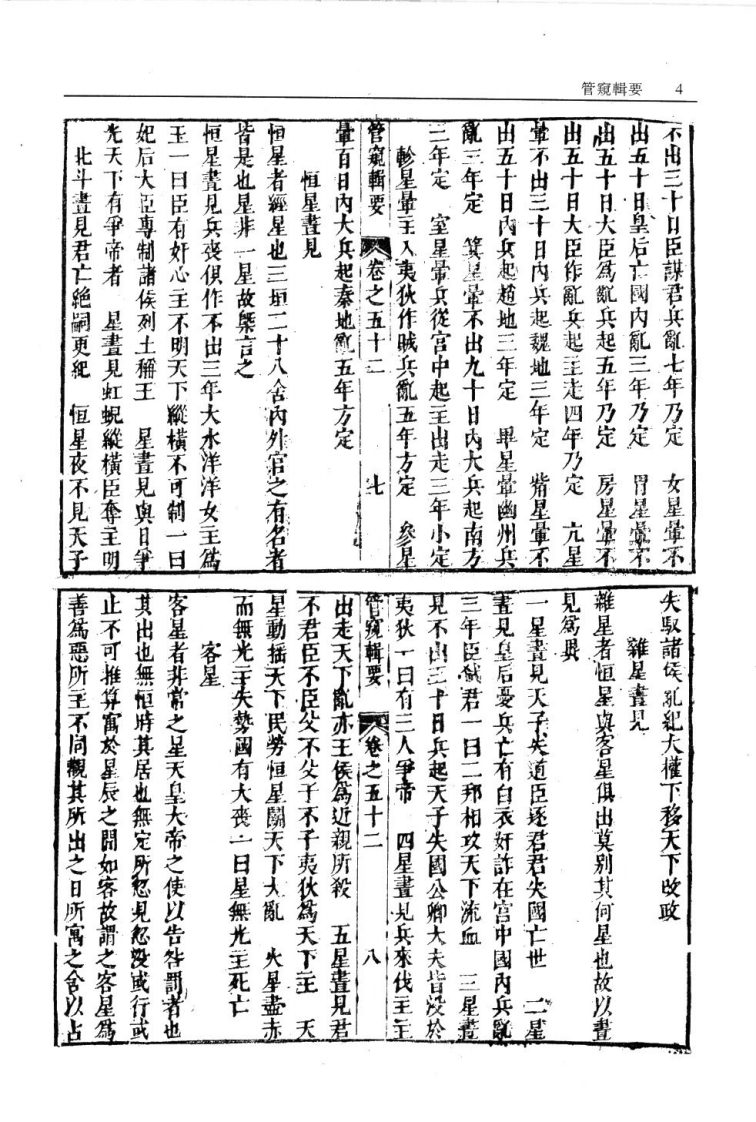 管窺輯要 4
不出三十日臣謀君兵亂七年乃定　女星暈不
出五十日皇后亡國內亂三年乃定　胃星暈不
出五十日大臣為亂兵起五年乃定　房星暈不
出五十日大臣作亂兵起主走四年乃定　亢星
暈不出三十日內兵起魏地三年定　觜星暈不
出五十日內兵起趙地三年定　畢星暈幽州兵
亂三年定　箕星暈不出九十日內大兵起南方
三年定　室星暈兵從宮中起主出走三年小定
軫星暈主人夷狄作賊兵亂五年方定　參星
管窺輯要　卷之五十二　七
暈百日內大兵起秦地亂五年方定
恒星晝見
恒星者經星也三垣二十八舍內外官之有名者
皆是也星非一星故槩言之
恒星晝見兵喪俱作不出三年大水洋洋女主為
王一曰臣有奸心主不明天下縱橫不可制一曰
妃后大臣專制諸侯列土稱王　星晝見與日爭
光天下有爭帝者　星晝見虹蜺縱橫臣奪主明
北斗晝見君亡絕嗣更紀　恒星夜不見天子
失馭諸侯亂紀大權下移天下改政
雜星晝見
雜星者恒星與客星俱出莫别其何星也故以晝
見為異
一星晝見天子失道臣逐君君失國亡世　二星
晝見皇后憂兵亡有白衣奸詐在宮中國內兵亂
三年臣弑君一曰二邦相攻天下流血　三星晝
見不出三十日兵起天子失國公卿大夫皆没於
夷狄一曰有三人爭帝　四星晝見兵來伐主主
管窺輯要　卷之五十二　八
出走天下亂亦王侯為近親所殺　五星晝見君
不君臣不臣父不父子不子夷狄為天下主　天
星動摇天下民勞恒星鬭天下大亂　火星盡赤
而無光主失勢國有大喪一曰星無光主死亡
客星
客星者非常之星天皇大帝之使以告咎罰者也
其出也無恒時其居也無定所忽見忽没或行或
止不可推算寓於星辰之間如客故謂之客星為
善為惡所主不同觀其所出之日所寓之舍以占